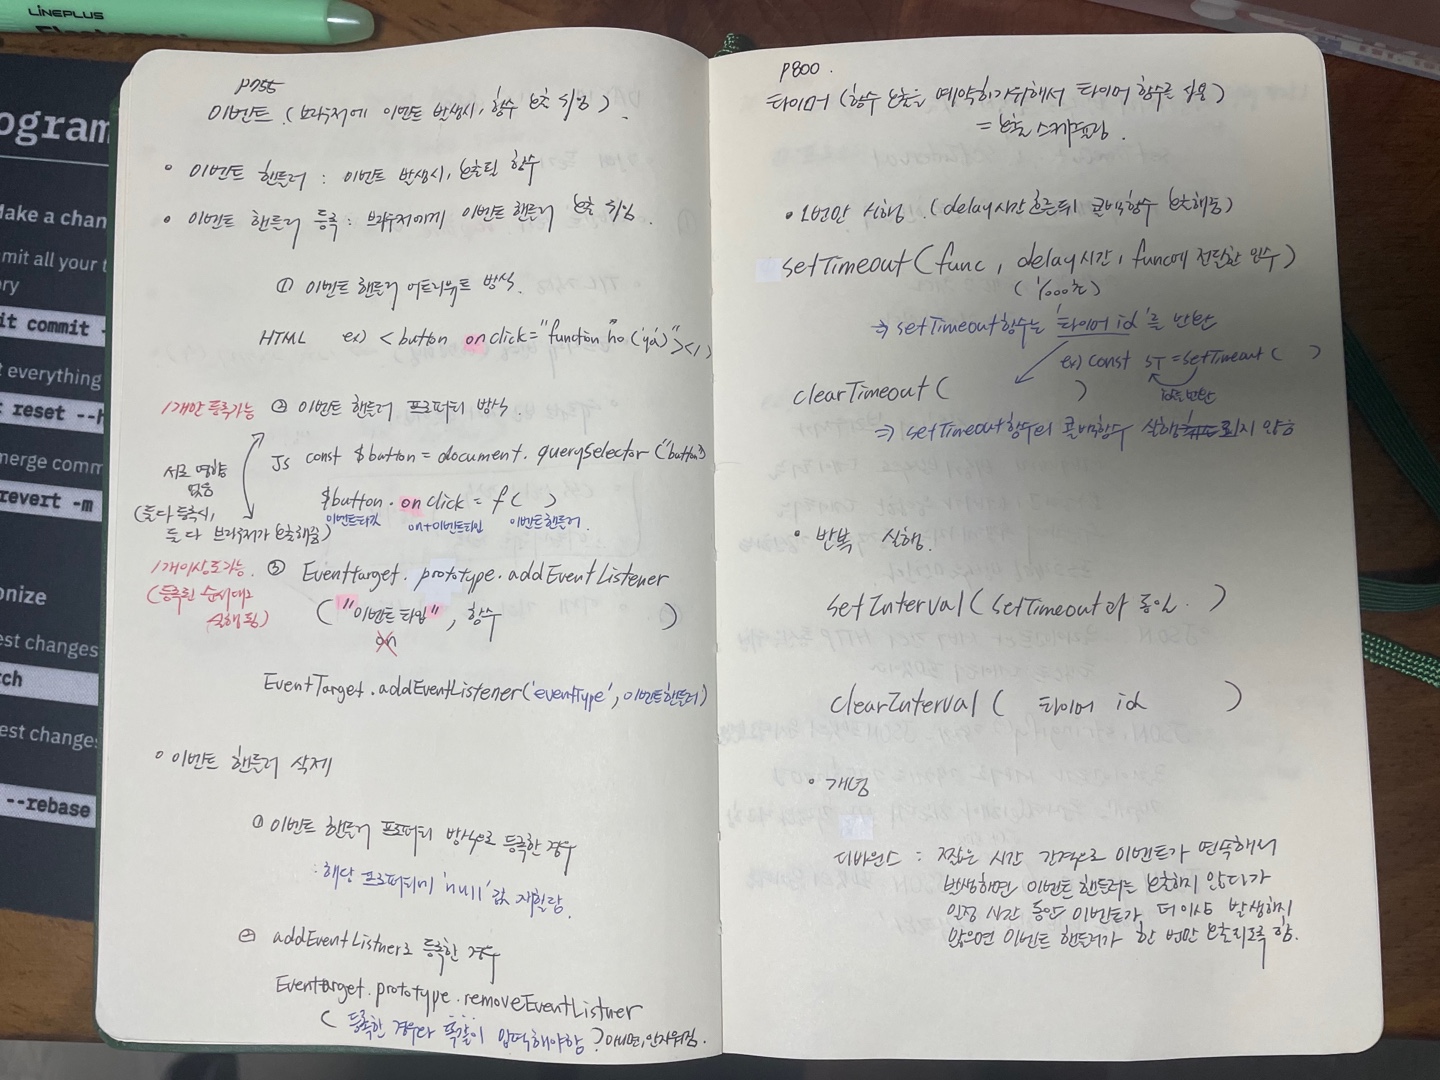 LINEPLUS
ogram
Make a chan
mmit all your t
ory
it commit -
t everything
t reset --h
merge comm
revert -m
onize
est changes
tch
est changes
--rebase
P755
이벤트 (브라우저에 이벤트 발생시, 함수 호출 위임)
• 이벤트 핸들러 : 이벤트 발생시, 호출될 함수
• 이벤트 핸들러 등록 : 브라우저에게 이벤트 핸들러 호출 위임.
① 이벤트 핸들러 어트리뷰트 방식.
HTML ex) <button onclick="function ho('ya')"></
1개만 등록가능 ② 이벤트 핸들러 프로퍼티 방식.
서로 영향
없음
(둘다 등록시,
둘 다 브라우저가 호출해줌)
JS const $button = document.querySelector("button")
$button.onclick = f ( )
이벤트타깃 on+이벤트타입 이벤트핸들러.
1개이상도가능.
(등록된 순서대로
실행됨)
③ Eventtarget.prototype.addEventListener
("이벤트타입", 함수 )
on
EventTarget.addEventListener('eventType', 이벤트핸들러)
• 이벤트 핸들러 삭제
① 이벤트 핸들러 프로퍼티 방식으로 등록한 경우
: 해당 프로퍼티에 'null'값 재할당.
② addEventListner로 등록한 경우
Eventtarget.prototype.removeEventListner
( 등록한 경우와 똑같이 입력해야함 ) 아니면, 안지워짐.
P800.
타이머 (함수 호출을 예약하기위해서 타이머 함수를 사용)
= 호출 스케줄링.
• 1번만 실행. (delay시간 흐른뒤 콜백함수 호출해줌)
setTimeout(func, delay시간, func에 전달할 인수)
(1/1000초)
⇒ setTimeout함수는 '타이머 id'를 반환
ex) const ST = setTimeout ( )
id를 반환
clearTimeout( )
⇒ setTimeout함수의 콜백함수 실행되지 않음
• 반복 실행.
setInterval(setTimeout과 동일. )
clearInterval( 타이머 id )
• 개념
디바운스 : 짧은 시간 간격으로 이벤트가 연속해서
발생하면 이벤트 핸들러는 호출하지 않다가
일정 시간 동안 이벤트가 더이상 발생하지
않으면 이벤트 핸들러가 한 번만 호출되도록 함.